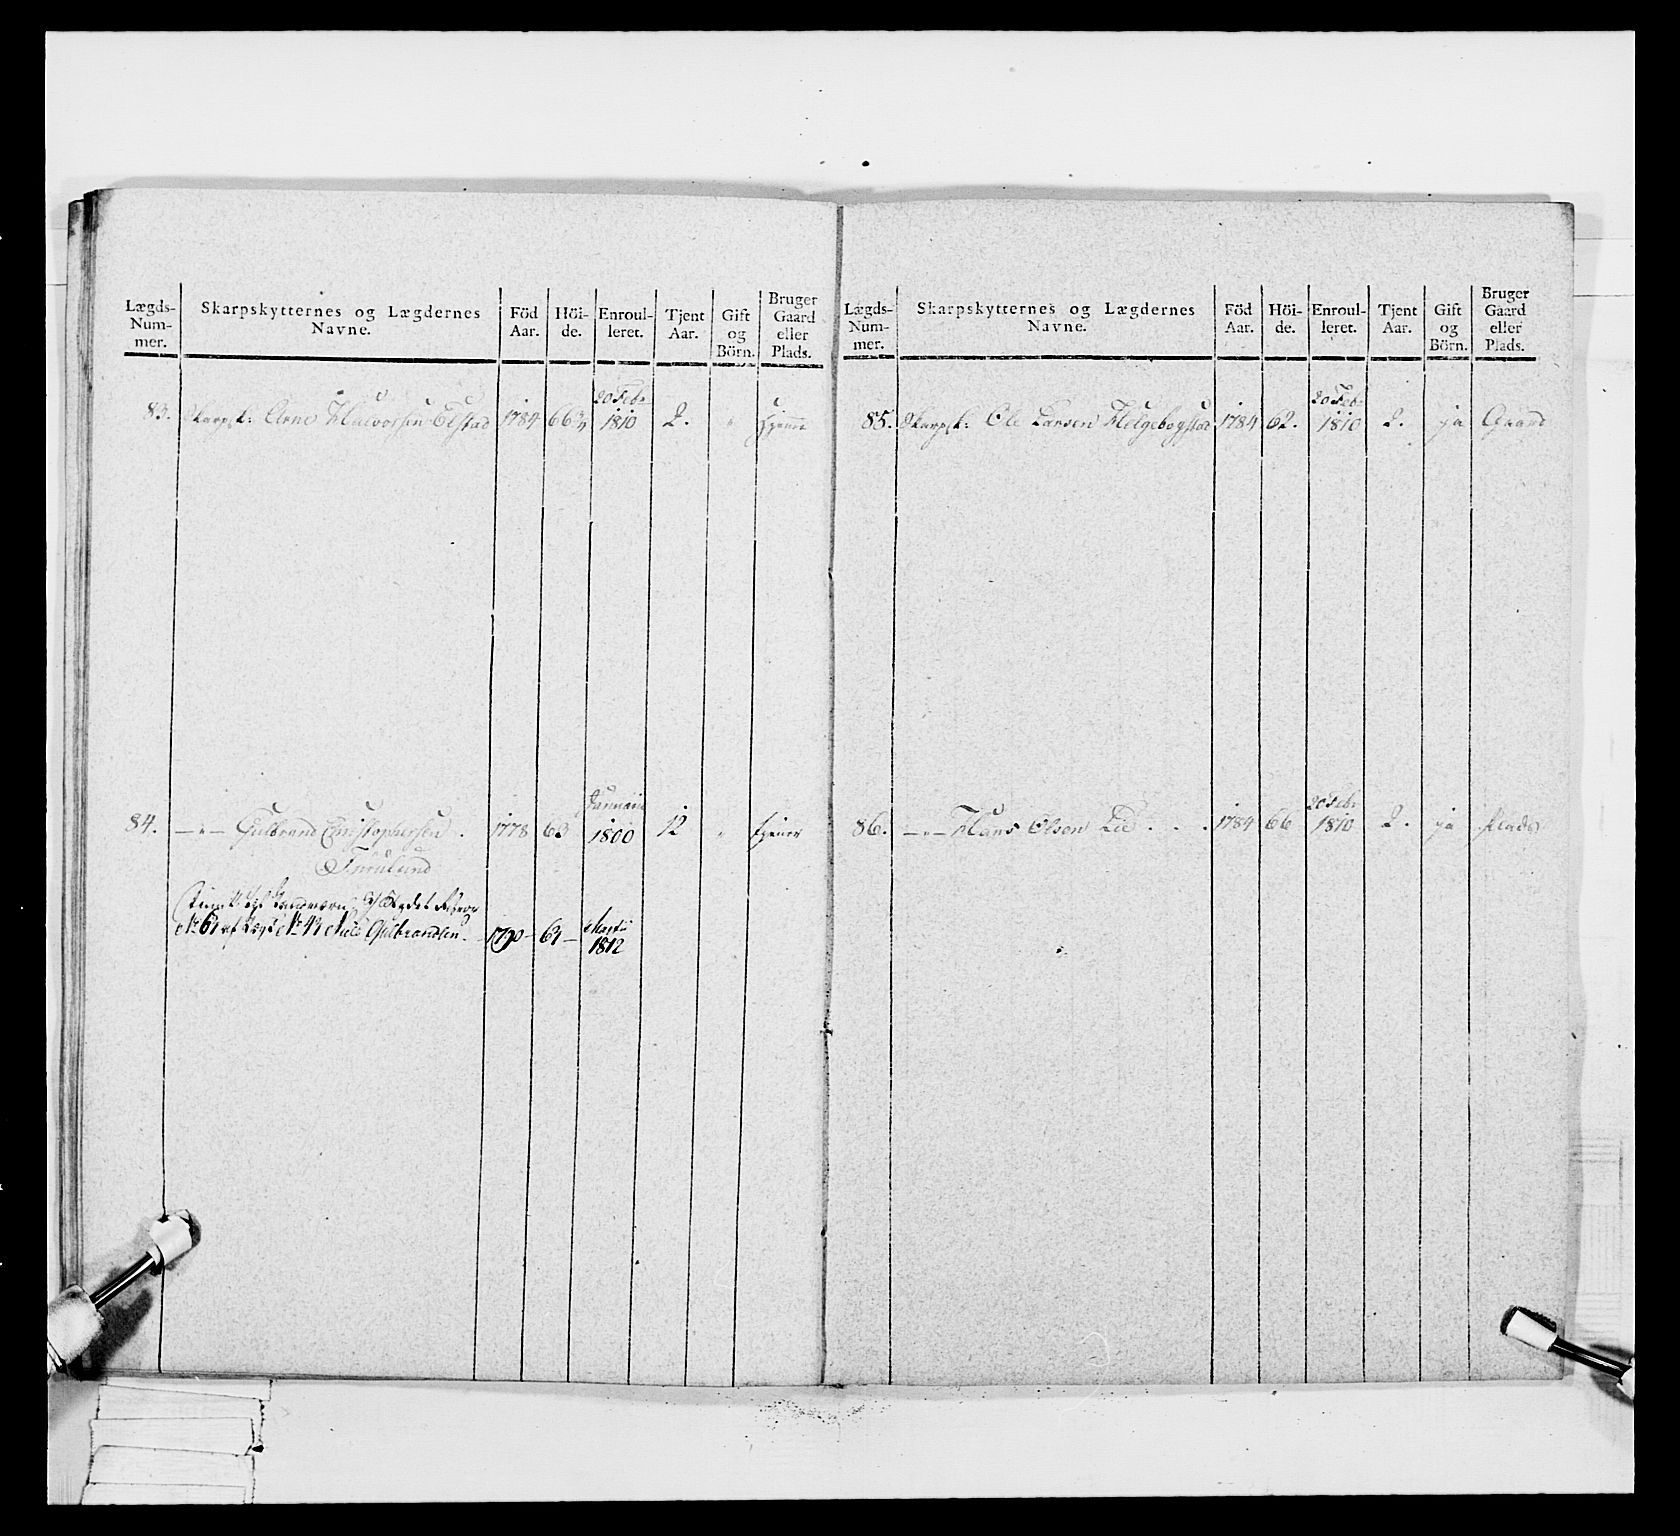 Lægds-Num-mer. Skarpskytternes og Lægdernes Navne. Föd Aar. Höi-de. Enroul-leret. Tjent Aar. Gift og Börn. Bruger Gaard eller Plads.
20 Febr
83. Skarpsk: Arne Halvorsen Elstad 1784 66¾ 1810 2. " tjener
Januarii
84. —"— Gulbrand Christophersen . 1778 63 1800 12 " tjener
Furulund
No 61 af No 43 Nils Gulbrandsen 1790 – 64 – Martii
1812
Lægds-Num-mer. Skarpskytternes og Lægdernes Navne. Föd Aar. Höi-de. Enroul-leret. Tjent Aar. Gift og Börn. Bruger Gaard eller Plads.
20 Febr
85. Skarpsk: Ole Larsen Helgebogstad 1784 62. 1810 2. ja Gaard
20 Febr
86. —"— Hans Olsen Lie . . . 1784 66 1810 2. ja Plads